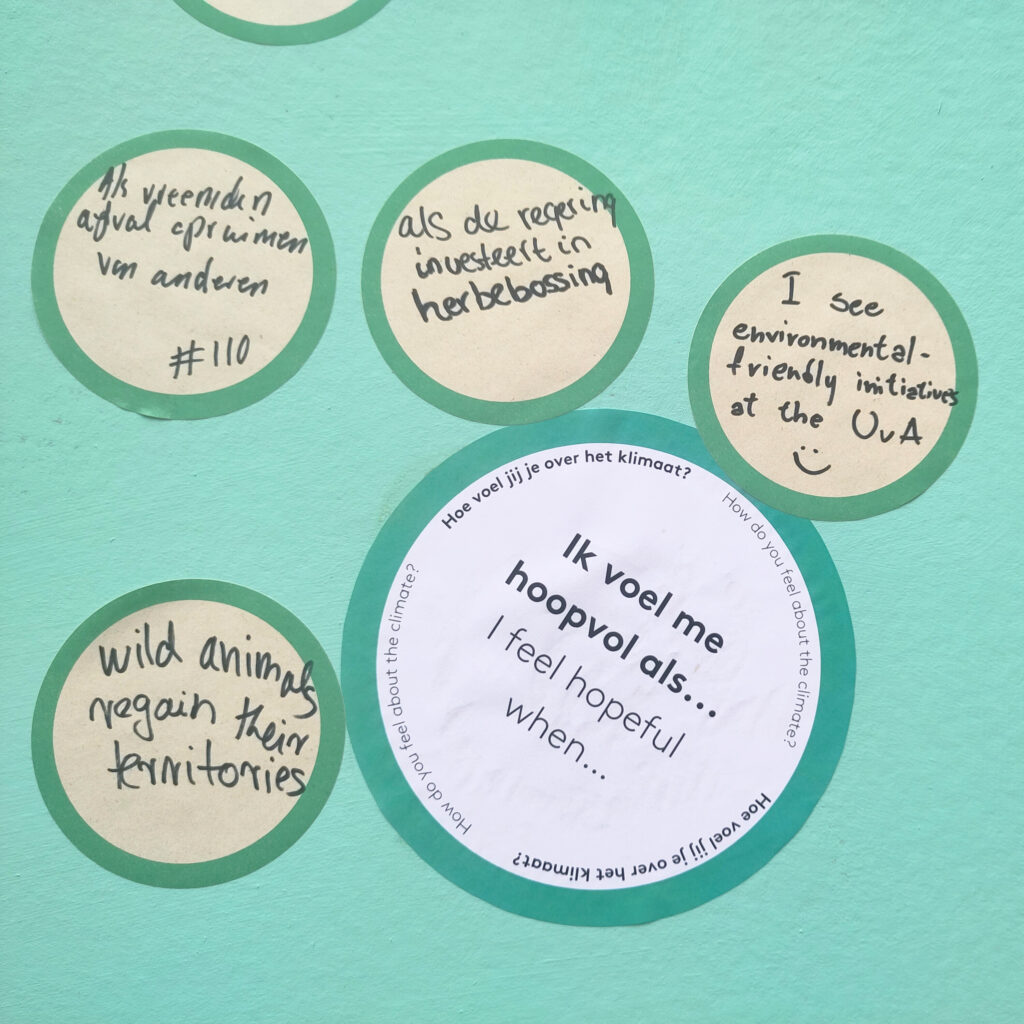 Als vreemden
afval opruimen
van anderen
#110
als de regering
investeert in
herbebossing
I see
environmental-
friendly initiatives
at the UvA
Hoe voel jij je over het klimaat?
How do you feel about the climate?
Ik voel me
hoopvol als...
I feel hopeful
when...
Hoe voel jij je over het klimaat?
How do you feel about the climate?
wild animals
regain their
territories